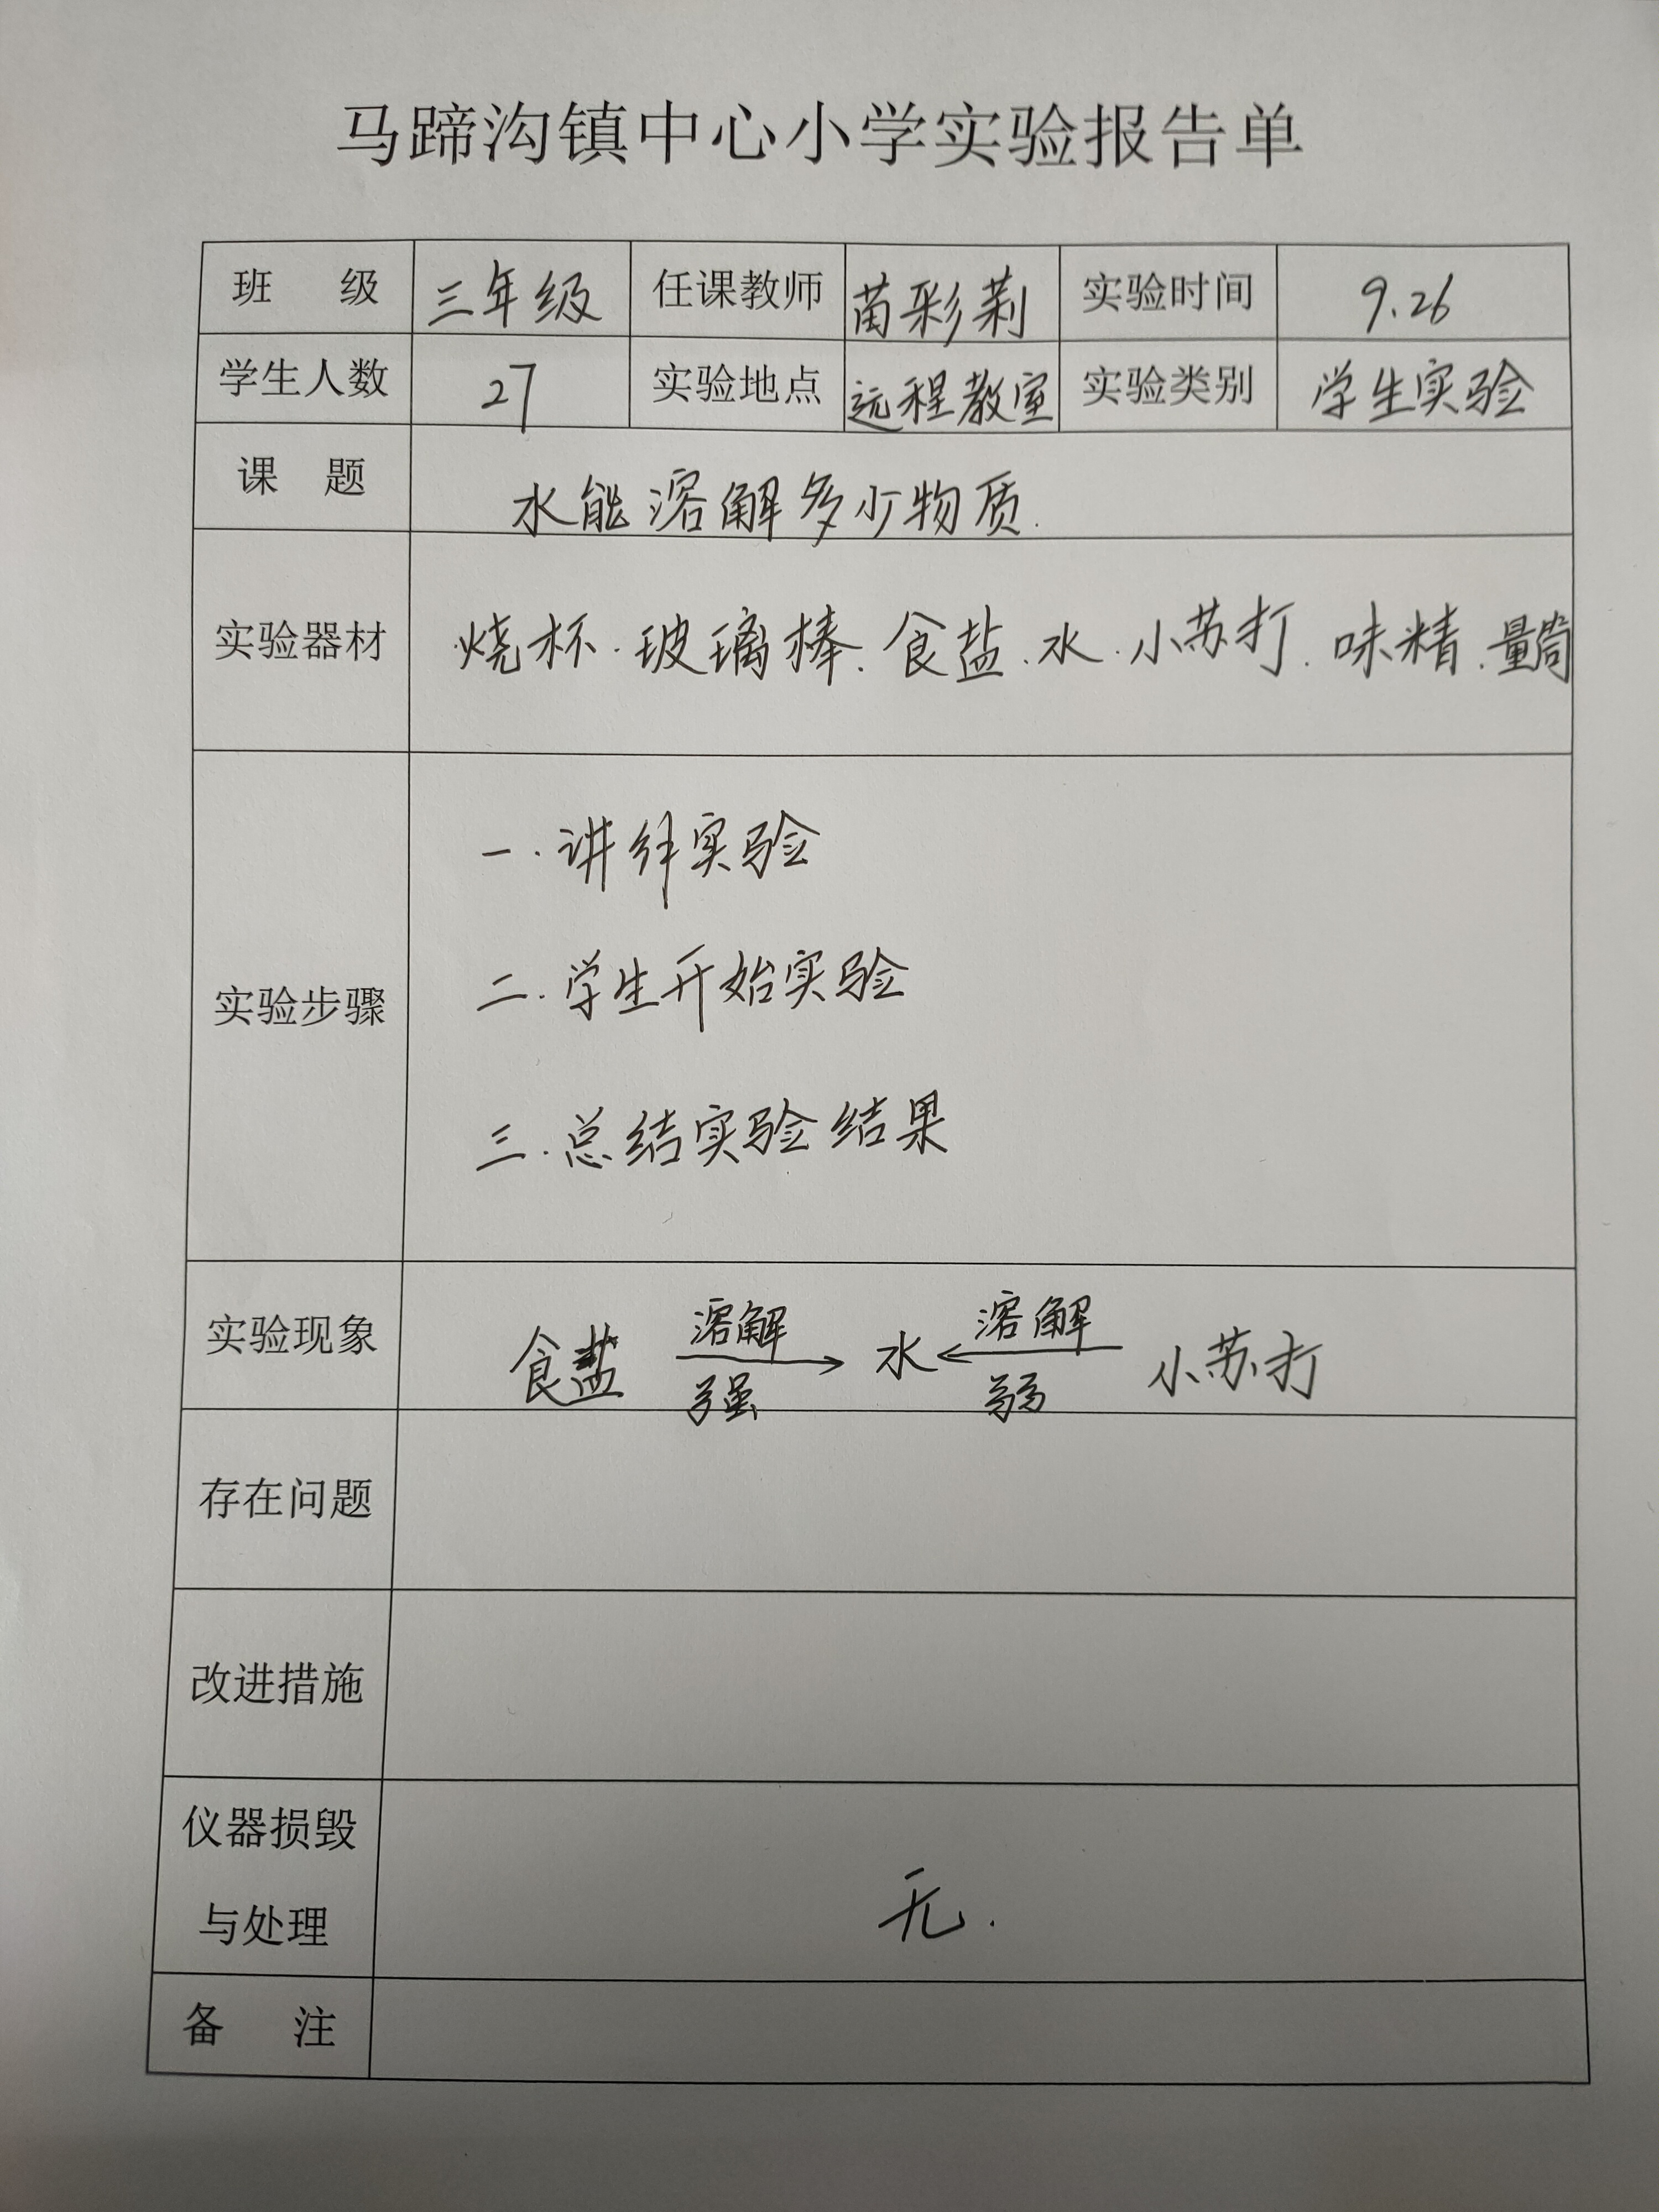 马蹄沟镇中心小学实验报告单
班 级 三年级 任课教师 苗彩莉 实验时间 9.26
学生人数 27 实验地点 远程教室 实验类别 学生实验
课 题 水能溶解多少物质.
实验器材 烧杯.玻璃棒.食盐.水.小苏打.味精.量筒
一.讲绎实验
二.学生开始实验
实验步骤
三.总结实验结果
实验现象 食盐 溶解 强 水 溶解 弱 小苏打
存在问题
改进措施
仪器损毁
与处理
无.
备 注